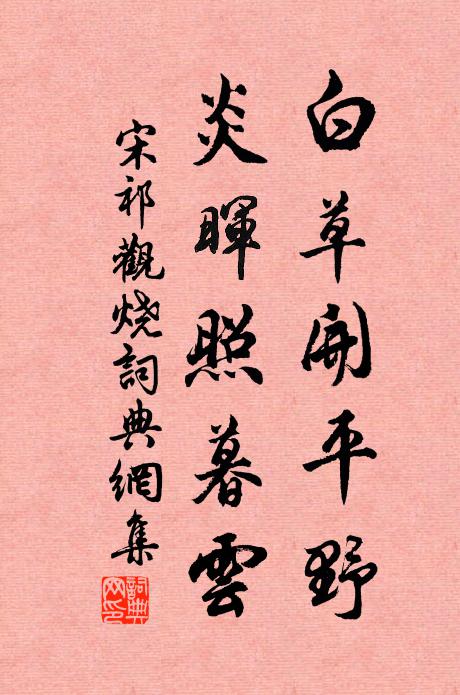 白草開平野
炎暉照暮雲
宋祁觀燒詞典網集
詞典網印